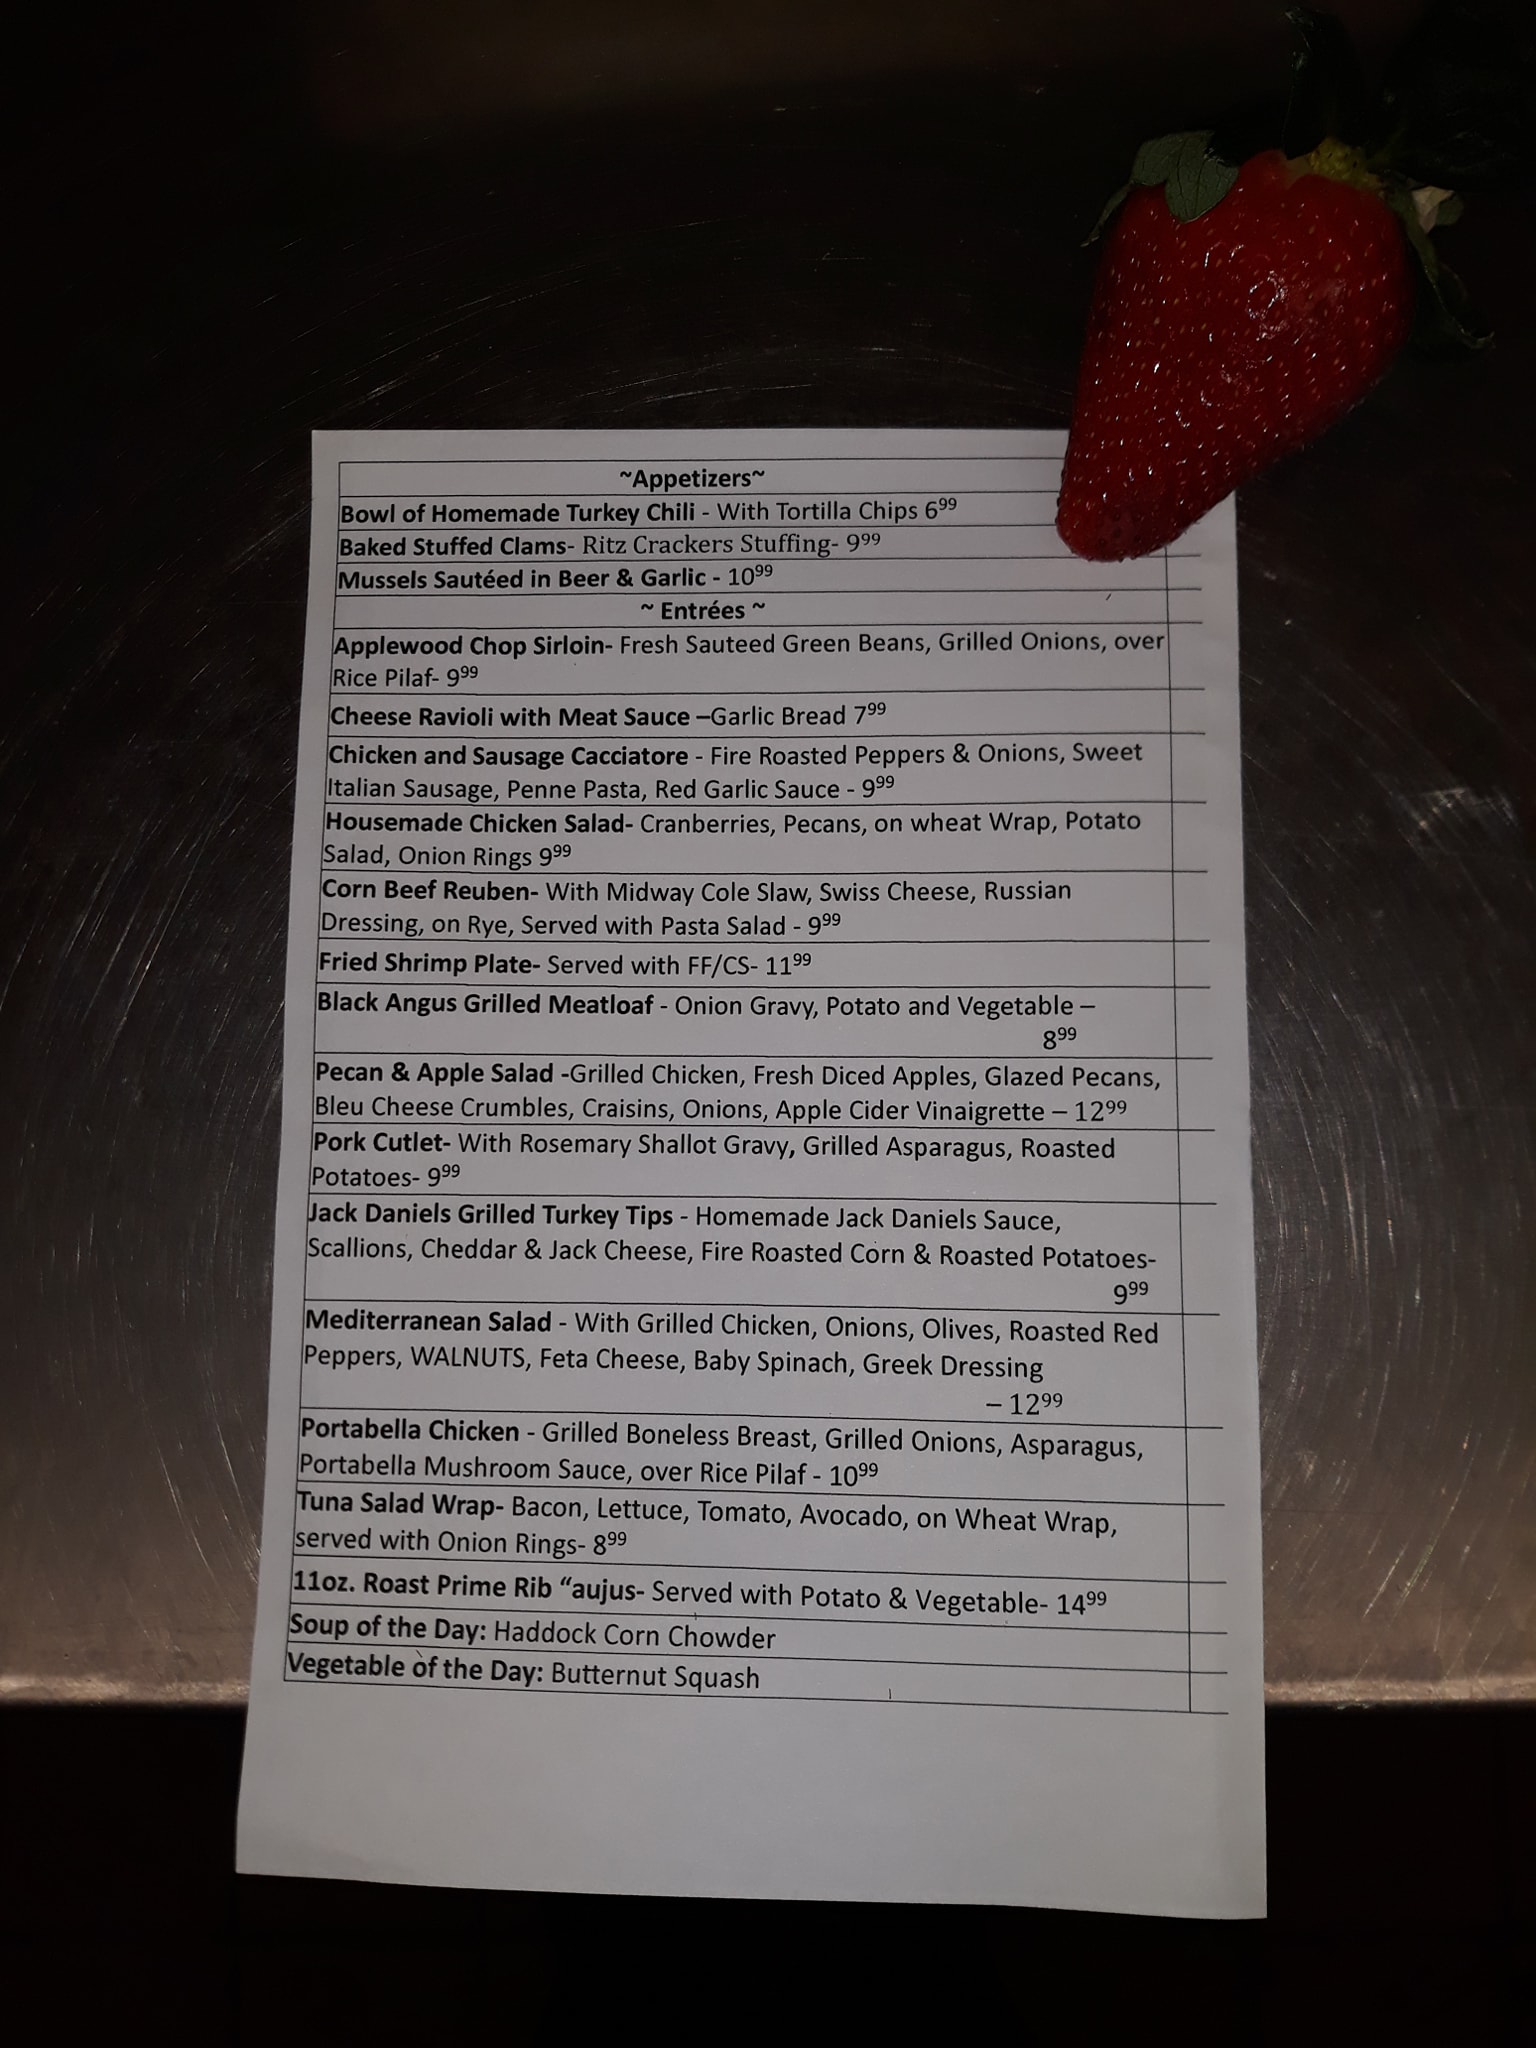 ~Appetizers~
Bowl of Homemade Turkey Chili - With Tortilla Chips 6⁹⁹
Baked Stuffed Clams- Ritz Crackers Stuffing- 9⁹⁹
Mussels Sautéed in Beer & Garlic - 10⁹⁹
~ Entrées ~
Applewood Chop Sirloin- Fresh Sauteed Green Beans, Grilled Onions, over
Rice Pilaf- 9⁹⁹
Cheese Ravioli with Meat Sauce –Garlic Bread 7⁹⁹
Chicken and Sausage Cacciatore - Fire Roasted Peppers & Onions, Sweet
Italian Sausage, Penne Pasta, Red Garlic Sauce - 9⁹⁹
Housemade Chicken Salad- Cranberries, Pecans, on wheat Wrap, Potato
Salad, Onion Rings 9⁹⁹
Corn Beef Reuben- With Midway Cole Slaw, Swiss Cheese, Russian
Dressing, on Rye, Served with Pasta Salad - 9⁹⁹
Fried Shrimp Plate- Served with FF/CS- 11⁹⁹
Black Angus Grilled Meatloaf - Onion Gravy, Potato and Vegetable –
8⁹⁹
Pecan & Apple Salad -Grilled Chicken, Fresh Diced Apples, Glazed Pecans,
Bleu Cheese Crumbles, Craisins, Onions, Apple Cider Vinaigrette – 12⁹⁹
Pork Cutlet- With Rosemary Shallot Gravy, Grilled Asparagus, Roasted
Potatoes- 9⁹⁹
Jack Daniels Grilled Turkey Tips - Homemade Jack Daniels Sauce,
Scallions, Cheddar & Jack Cheese, Fire Roasted Corn & Roasted Potatoes-
9⁹⁹
Mediterranean Salad - With Grilled Chicken, Onions, Olives, Roasted Red
Peppers, WALNUTS, Feta Cheese, Baby Spinach, Greek Dressing
– 12⁹⁹
Portabella Chicken - Grilled Boneless Breast, Grilled Onions, Asparagus,
Portabella Mushroom Sauce, over Rice Pilaf - 10⁹⁹
Tuna Salad Wrap- Bacon, Lettuce, Tomato, Avocado, on Wheat Wrap,
served with Onion Rings- 8⁹⁹
11oz. Roast Prime Rib “aujus- Served with Potato & Vegetable- 14⁹⁹
Soup of the Day: Haddock Corn Chowder
Vegetable of the Day: Butternut Squash